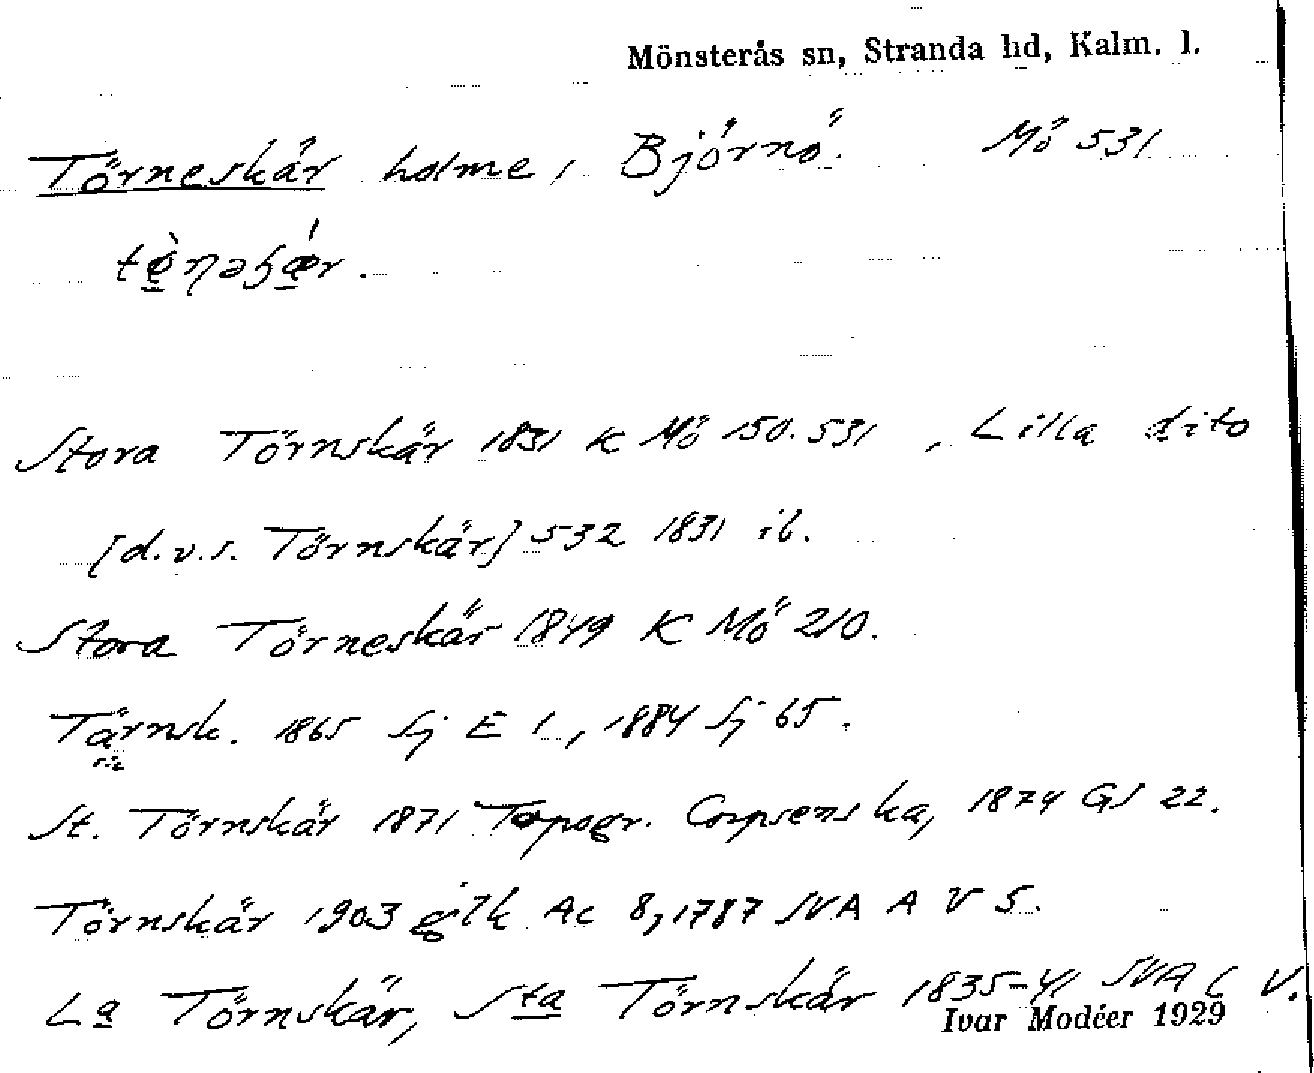 Mönsterås sn, Stranda hd, Kalm. l.
Törneskär holme, Björnö. Mö 531
Stora Törnskär 1831 K Mö 150. 531, Lilla dito
[d.v.s. Törnskär] 532 1831 ib.
Stora Törneskär 1849 K Mö 210.
Tärnsk. 1865 Sj E 1, 1884 Sj 65.
St. Törnskär 1871 Topogr. Corpsens ka, 1874 GS 22.
Törnskär 1903 gilk Ac 8, 1787 SVA A V 5.
La Törnskär, Sta Törnskär 1835-41 SVA C V.
Ivar Modéer 1929